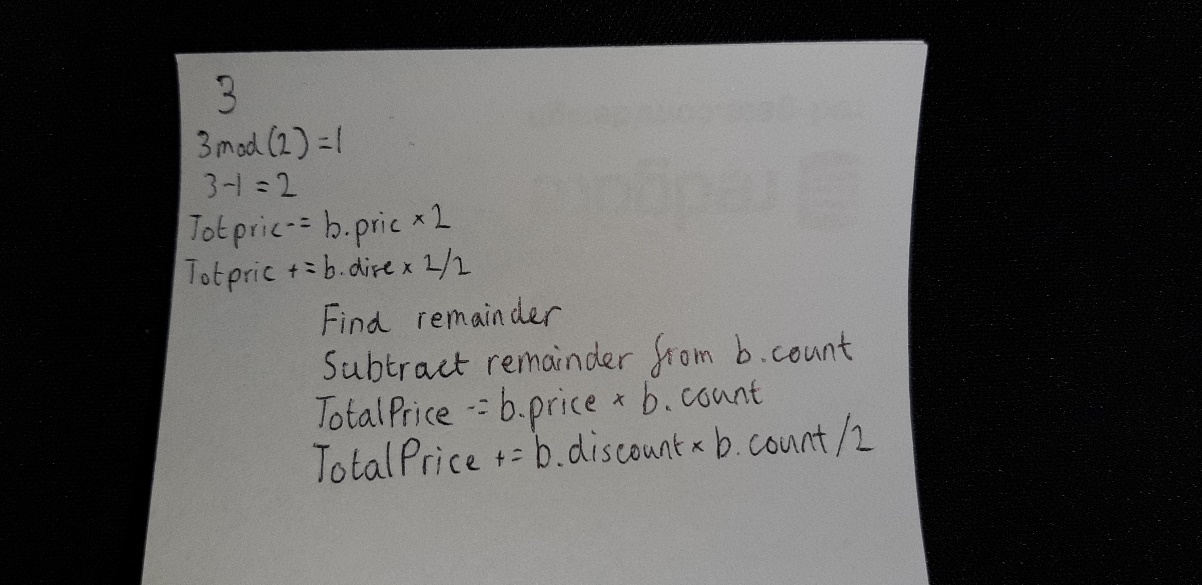 3
3mod(2)=1
3-1=2
Totpric-= b.pric × 2
Totpric += b.disc × 2/2
Find remainder
Subtract remainder from b.count
TotalPrice -= b.price × b.count
TotalPrice += b.discount × b.count/2